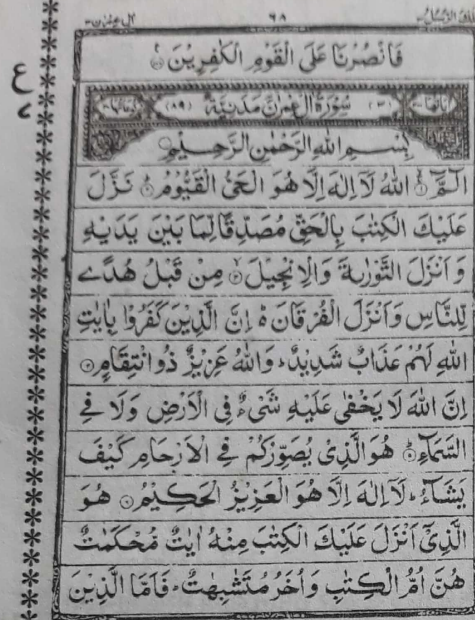 ال عمرٰن ٣ ٦٨
فَانْصُرْنَا عَلَى الْقَوْمِ الْكٰفِرِيْنَ
سُوْرَةُ اٰلِ عِمْرٰنَ مَدَنِيَّةٌ (٣) (٨٩)
بِسْمِ اللهِ الرَّحْمٰنِ الرَّحِيْمِ
الٓمّٓ اللهُ لَآ اِلٰهَ اِلَّا هُوَ الْحَىُّ الْقَيُّوْمُ نَزَّلَ
عَلَيْكَ الْكِتٰبَ بِالْحَقِّ مُصَدِّقًا لِّمَا بَيْنَ يَدَيْهِ
وَاَنْزَلَ التَّوْرٰىةَ وَالْاِنْجِيْلَ مِنْ قَبْلُ هُدًى
لِّلنَّاسِ وَاَنْزَلَ الْفُرْقَانَ ہ اِنَّ الَّذِيْنَ كَفَرُوْا بِاٰيٰتِ
اللهِ لَهُمْ عَذَابٌ شَدِيْدٌ وَاللهُ عَزِيْزٌ ذُو انْتِقَامٍ
اِنَّ اللهَ لَا يَخْفٰى عَلَيْهِ شَىْءٌ فِى الْاَرْضِ وَلَا فِى
السَّمَآءِ هُوَ الَّذِىْ يُصَوِّرُكُمْ فِى الْاَرْحَامِ كَيْفَ
يَشَآءُ لَآ اِلٰهَ اِلَّا هُوَ الْعَزِيْزُ الْحَكِيْمُ هُوَ
الَّذِىْٓ اَنْزَلَ عَلَيْكَ الْكِتٰبَ مِنْهُ اٰيٰتٌ مُّحْكَمٰتٌ
هُنَّ اُمُّ الْكِتٰبِ وَاُخَرُ مُتَشٰبِهٰتٌ فَاَمَّا الَّذِيْنَ
ع